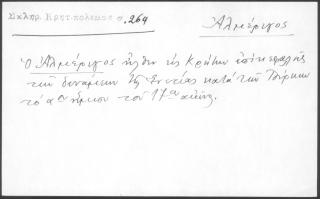 Σκληρ. Κρητ. πόλεμος σ. 264
Ἀλμέριγος
Ὁ Ἀλμέριγος ἦλθεν εἰς Κρήτην ἐπὶ κεφαλῆς
τῶν δυνάμεων τῆς Ἑνετίας κατὰ τῶν Τούρκων
τὸ αον ἥμισυ τοῦ 17ου αἰῶνος.